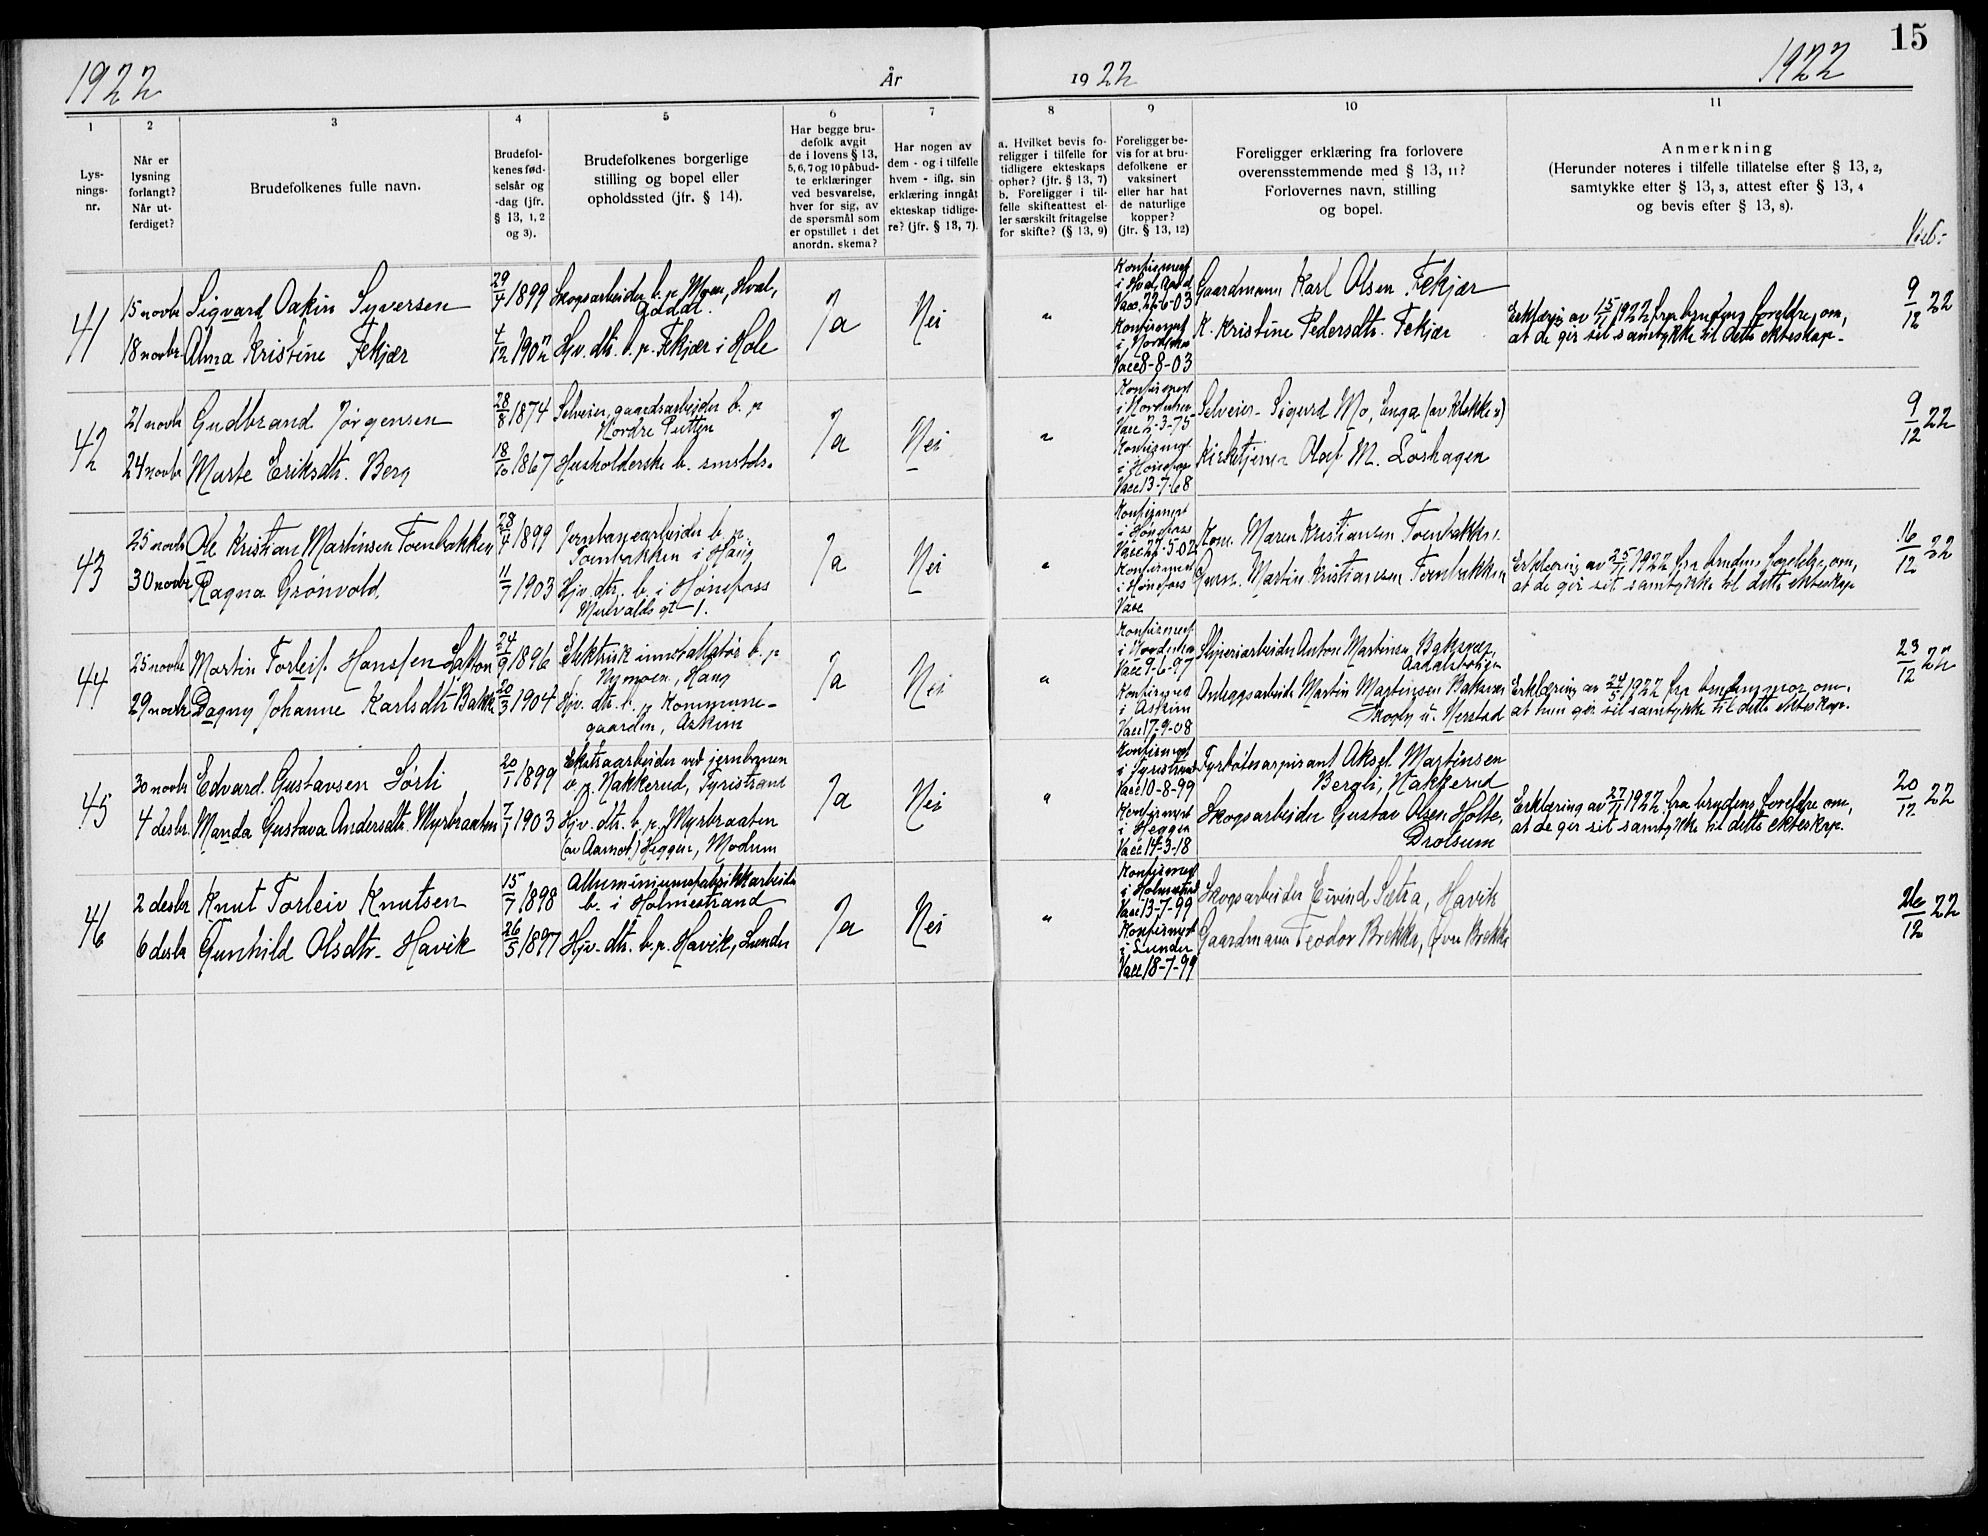 15
1922 År 1922 1922
1 2 3 4 5 6 7 8 9 10 11
Lys-
nings-
nr.
Når er
lysning
forlangt?
Når ut-
ferdiget?
Brudefolkenes fulle navn.
Brudefol-
kenes fød-
selsår og
-dag (jfr.
§ 13, 1, 2
og 3).
Brudefolkenes borgerlige
stilling og bopel eller
opholdssted (jfr. § 14).
Har begge bru-
defolk avgit
de i lovens § 13,
5, 6, 7 og 10 påbud-
te erklæringer
ved besvarelse,
hver for sig, av
de spørsmål som
er opstillet i det
anordn. skema?
Har nogen av
dem - og i tilfelle
hvem - iflg. sin
erklæring inngåt
ekteskap tidlige-
re? (jfr. § 13, 7).
a. Hvilket bevis fo-
religger i tilfelle for
tidligere ekteskaps
ophør? (jfr. § 13, 7)
b. Foreligger i til-
felle skifteattest el-
ler særskilt fritagelse
for skifte? (§ 13, 9)
Foreligger be-
vis for at bru-
defolkene er
vaksinert
eller har hat
de naturlige
kopper?
(jfr. § 13, 12)
Foreligger erklæring fra forlovere
overensstemmende med § 13, 11?
Forlovernes navn, stilling
og bopel.
Anmerkning
(Herunder noteres i tilfelle tillatelse efter § 13, 2,
samtykke efter § 13, 3, attest efter § 13, 4
og bevis efter § 13, 8).
Viet:
41
15 novbr
18 novbr
Sigvard Oakin Syversen
Alma Kristine Fekjær
29/4 1899
4/12 1902
Skogsarbeider b. p. Moen, Hval,
Aadal.
Hjv. dtr. b. p. Fekjær i Hole
Ja
Nei
"
Konfirmert
i Hval, Aadal
Vacc. 22-6-03
Konfirmert
i Norderhov
Vacc 8-8-03
Gaardmann Karl Olsen Fekjær
K. Kristine Pedersdtr. Fekjær
Erklæring av 15/11 1922 fra brudens foreldre om,
at de gir sit samtykke til dette ekteskap.
9/12 22
42
21 novbr
24 novbr
Gudbrand Jørgensen
Marte Eriksdtr. Berg
28/8 1874
18/10 1867
Selveier, gaardsarbeider b. p
Nordre Putten
Husholderske b. smstds.
Ja
Nei
"
Konfirmert
i Norderhov
Vacc 2-3-75
Konfirmert
i Hønefoss
Vacc 13-7-68
Selveier Sigurd Mo, Enga (av Klekken)
Kirketjener Olaf M. Løshagen
9/12 22
43
25 novbr
30 novbr
Ole Kristian Martinsen Toenbakken
Ragna Grønvold.
28/4 1899
11/7 1903
Jernbanearbeider b. p.
Toenbakken i Haug
Hjv. dtr. b. i Hønefoss
gt. 1.
Ja
Nei
"
Konfirmert
i Hønefoss
Konfirmert
i Hønefoss
Vacc
Kone Maren Kristiansen Toenbakken
Martin Kristiansen Toenbakken
Erklæring av 25/11 1922 fra brudens foreldre om,
at de gir sit samtykke til dette ekteskap
16/12 22
44
25 novbr
29 novbr
Martin Torleif Hansen
Dagny Johanne Karlsdtr. Bakke
24/9 1896
20/3 1904
Elektrisk installatør b. p
Nymoen, Haug
Hjv. dtr. b. p Kommune-
gaarden, Askim
Ja
Nei
"
Konfirmert
i Norderhov
Vacc 9-6-97
Konfirmert
i Askim
Vacc 17-9-08
Sliperiarbeider Anton Martinsen
Anleggsarbeider Martin Martinsen
Skogly u. Nerstad
Erklæring av 24/5 1922 fra brudens mor om,
at hun gir sit samtykke til dette ekteskap.
23/12 22
45
30 novbr
4 desbr
Edvard Gustavsen Sørli
Manda Gustava Andersdtr. Myrbraaten
20/1 1899
7/1 1903
Ekstraarbeider ved jernbanen
b. p Nakkerud, Tyristrand
Hjv. dtr. b. p. Myrbraaten
(av Aamot) Heggen, Modum
Ja
Nei
"
Konfirmert
i Tyristrand
Vacc 10-8-99
Konfirmert
i Heggen
Vacc 14-3-18
Fyrbøteraspirant Aksel Martinsen
Bergli, Nakkerud
Skogsarbeider Gustav Olsen Holte,
Drolsum
Erklæring av 27/11 1922 fra brudens foreldre om,
at de gir sit samtykke til dette ekteskap.
20/12 22
46
2 desbr
6 desbr
Knut Torleiv Knutsen
Gunhild Olsdtr. Havik
15/7 1898
26/5 1897
Alluminiumsfabrikkarbeider
b. i Holmestrand
Hjv. dtr. b. p. Havik, Lunder
Ja
Nei
"
Konfirmert
i Holmestrand
Vacc 13-7-99
Konfirmert
i Lunder
Vacc 18-7-99
Skogsarbeider Eivind Sætra, Havik
Gaardmann Teodor Brekke, Øvre Brekke
26/12 22